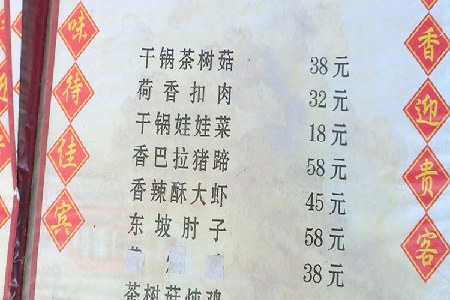 味待佳宾
干锅茶树菇 38元
荷香扣肉 32元
干锅娃娃菜 18元
香巴拉猪蹄 58元
香辣酥大虾 45元
东坡肘子 58元
38元
茶树菇炖鸡
香迎贵客